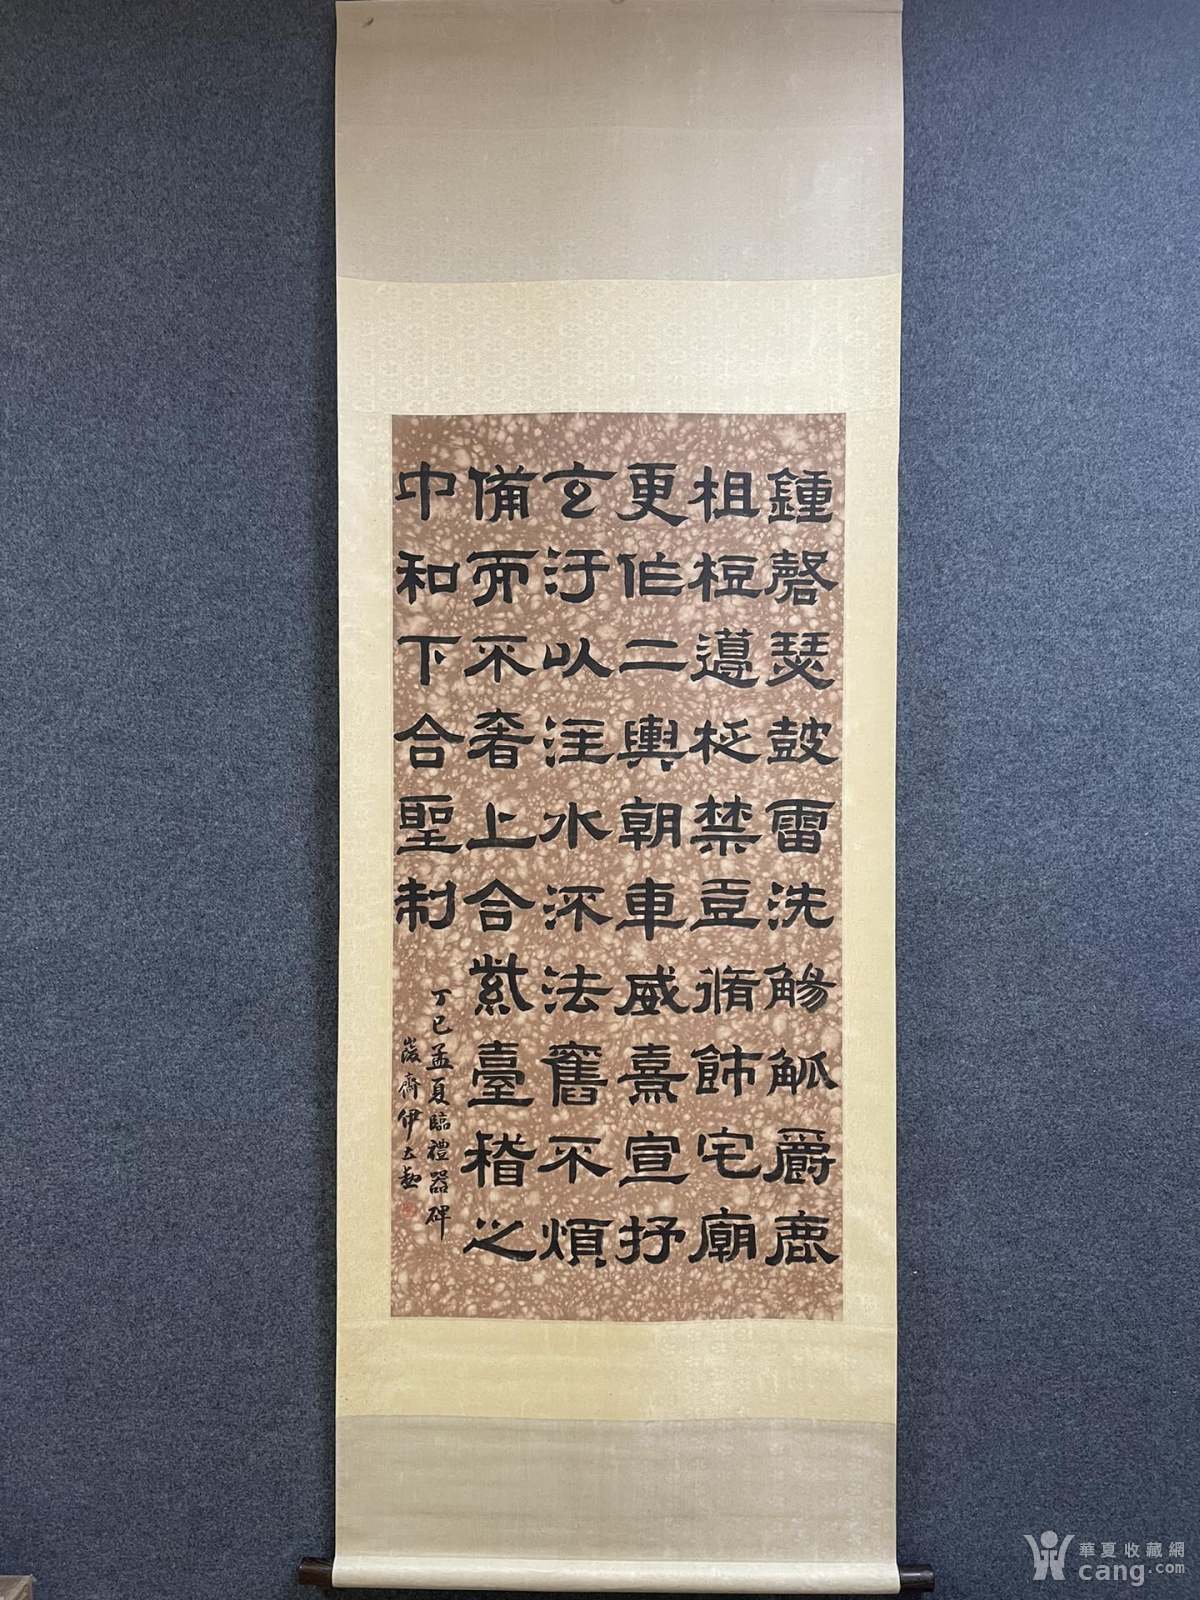 鍾磬瑟鼓雷洗觴觚爵鹿
柤梪籩柉禁壺脩飾宅廟
更作二輿朝車威熹宣抒
玄汙以注水流法舊不煩
備而不奢上合紫臺稽之
中和下合聖制
丁巳孟夏臨禮器碑
峻齋伊立勳
華夏收藏網
cang.com